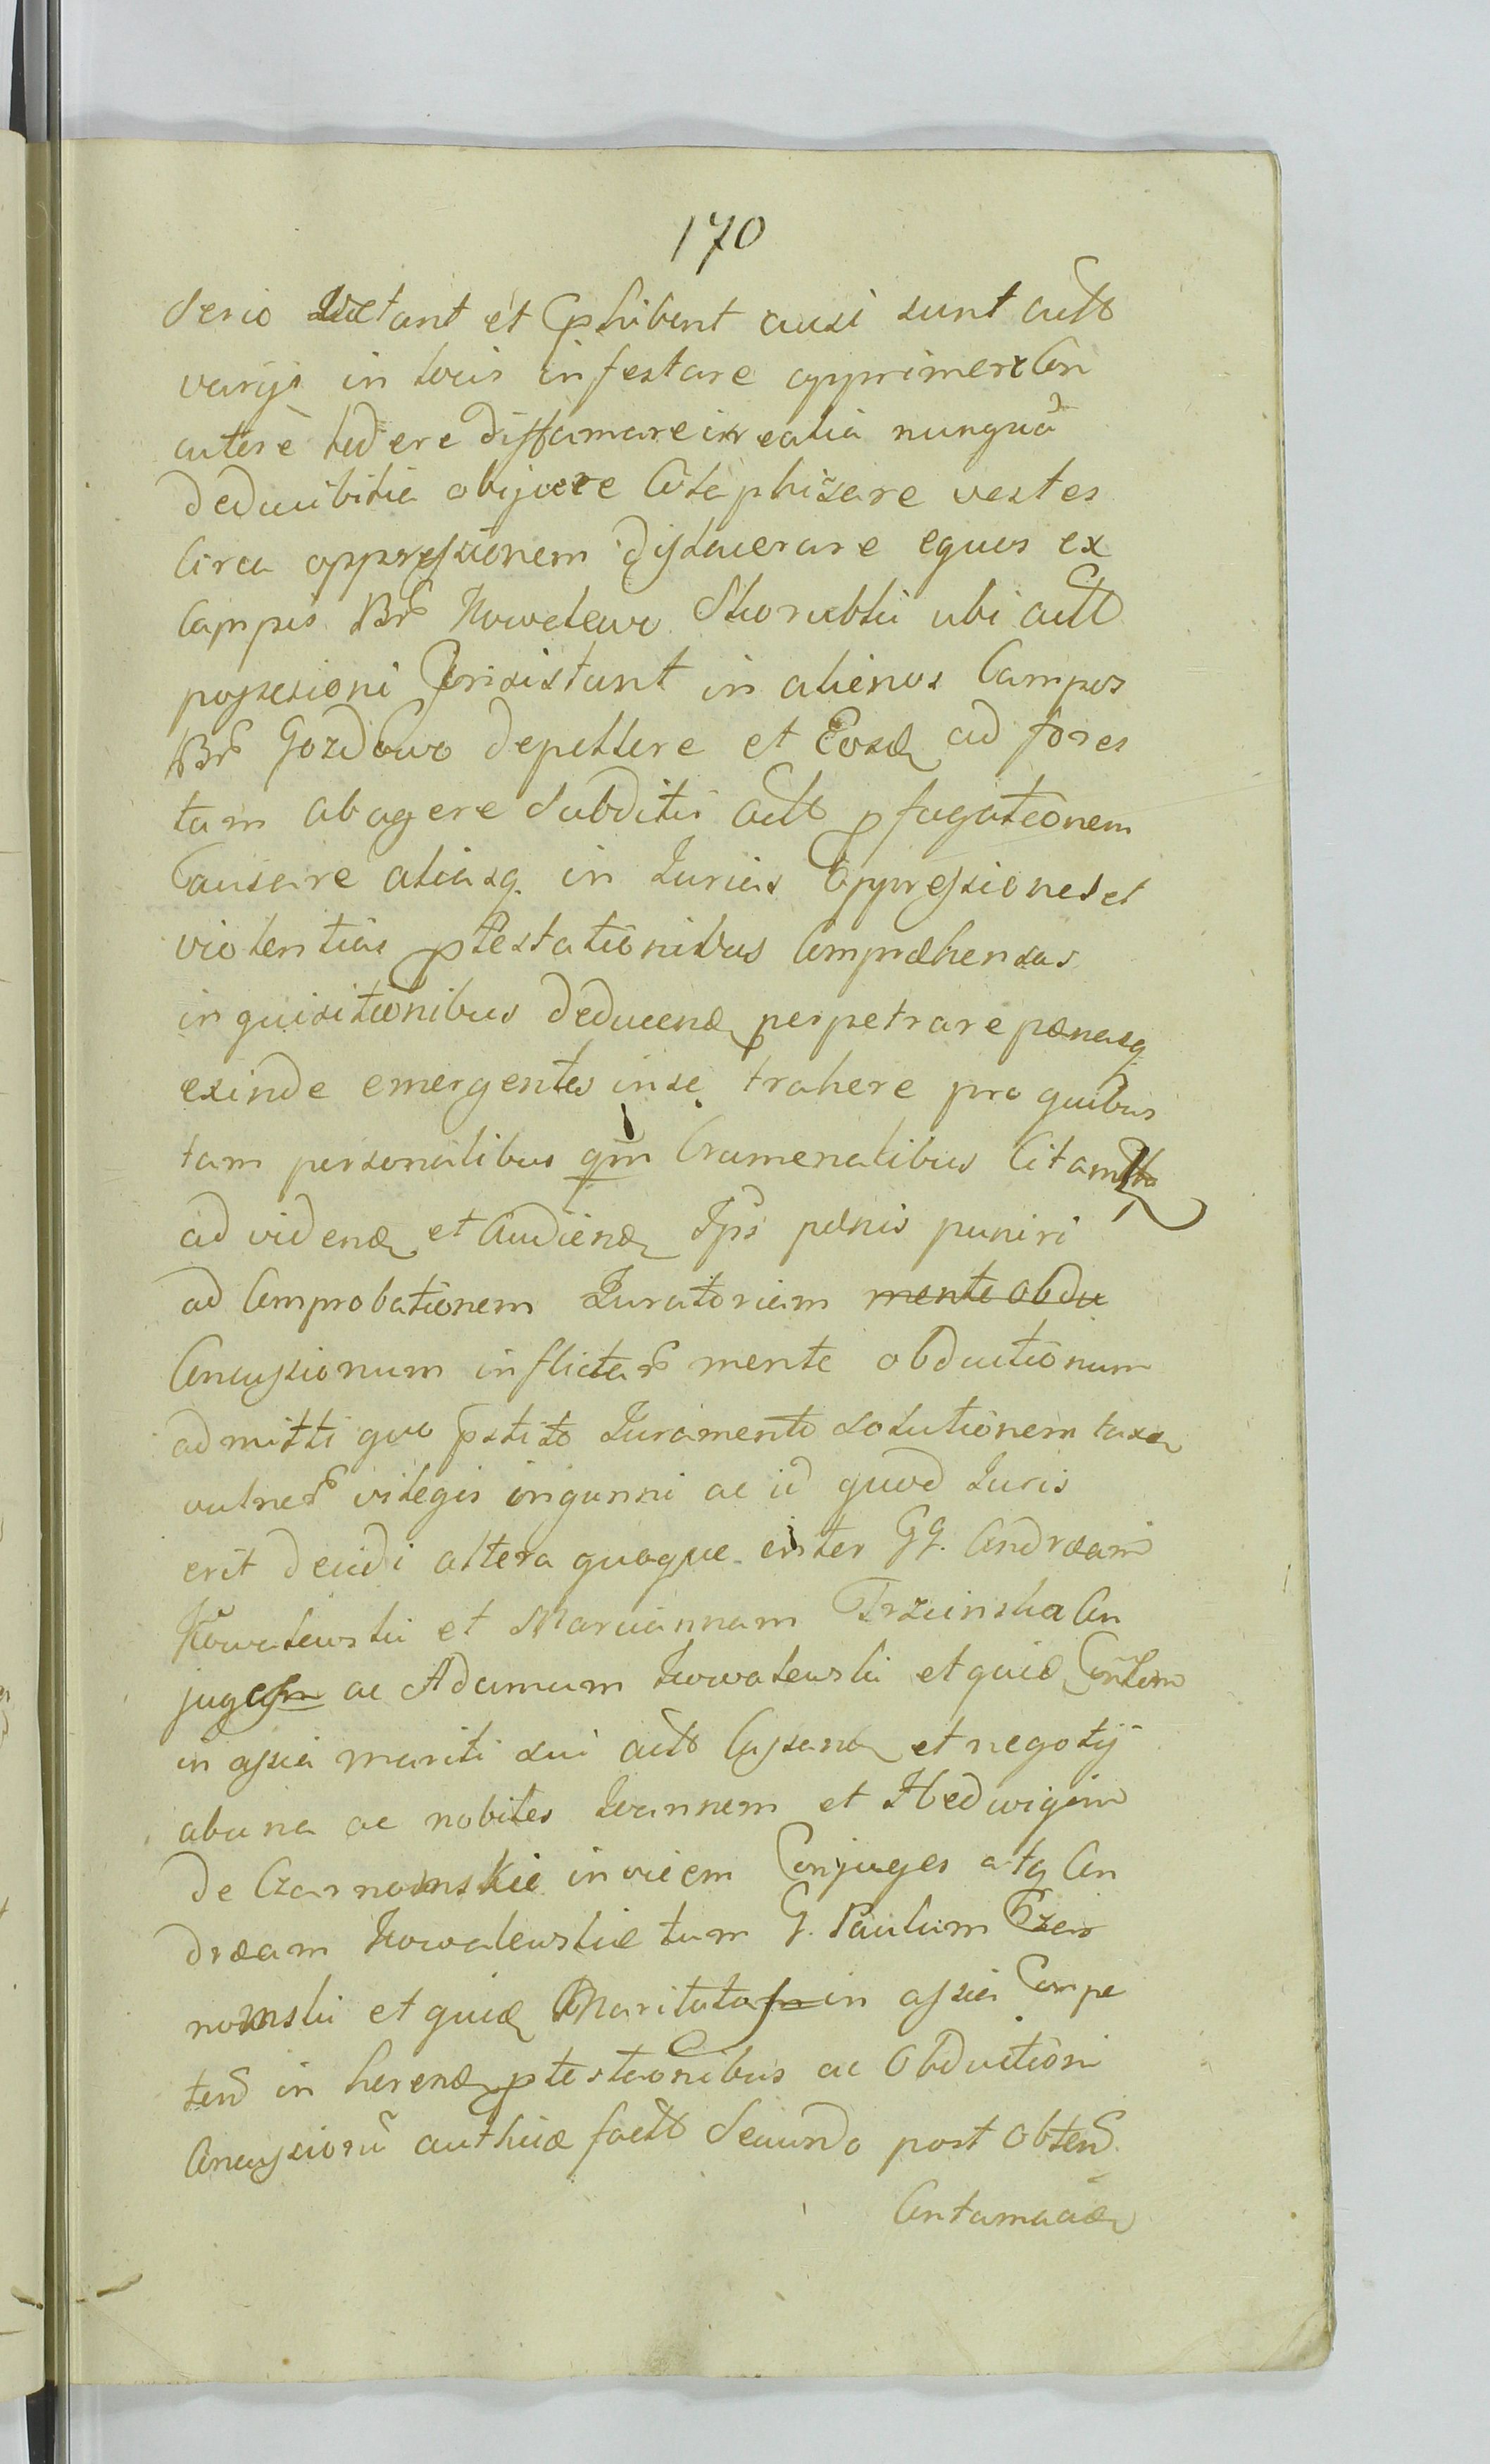 170
Serio Vetant et Cphibent ausi sunt actt
varijs in locis infestare opprimere Con
cutere lædere diffamare irrealia nunquã
deducibilia objicere Colaphisare vestes
Circa oppressionem dislacerare equos ex
Campis Br Kowalewo Skorubki ubi actt
possessioni Consistunt in alienos Campos
Br Gozdowo depellere et Eosd ad fores
tam abagere Subditis actt pfugationem
Causare aliasq in Jurias oppressiones et
violentias ptestationibus Compræhensas
inquisitionibus deducend perpetrare pænasq
exinde emergentes in se trahere pro quibus
tam personalibus qm Cramenalibus Citam
ad vidend et Audiend Ips pænis puniri
ad Comprobationem Juratoriam mente obdu
Concussionum inflictar mente obductionum
admitti quo pstito Juramento solutionem taxæ
vulner vi legis injunni ac id quod Juris
erit decidi altera quoque inter GG. Andræam
Kowalewski et Mariannam Trzcinska Con
juges ac Adamum Kowalewski et quid Contem
in assia mariti sui actt Causand et negotij
abuna ac nobiles Joannem et Hedwigim
de Czarnowskie invicem Conjuges atq An
dræam Kowalewskie tum G. Paulum Czar
nowski et quid Maritata in assia Compe
tend in hærend ptestationibus ac Obduction
Concussionũ authice factt Secundo post obtend
Contumaciæ